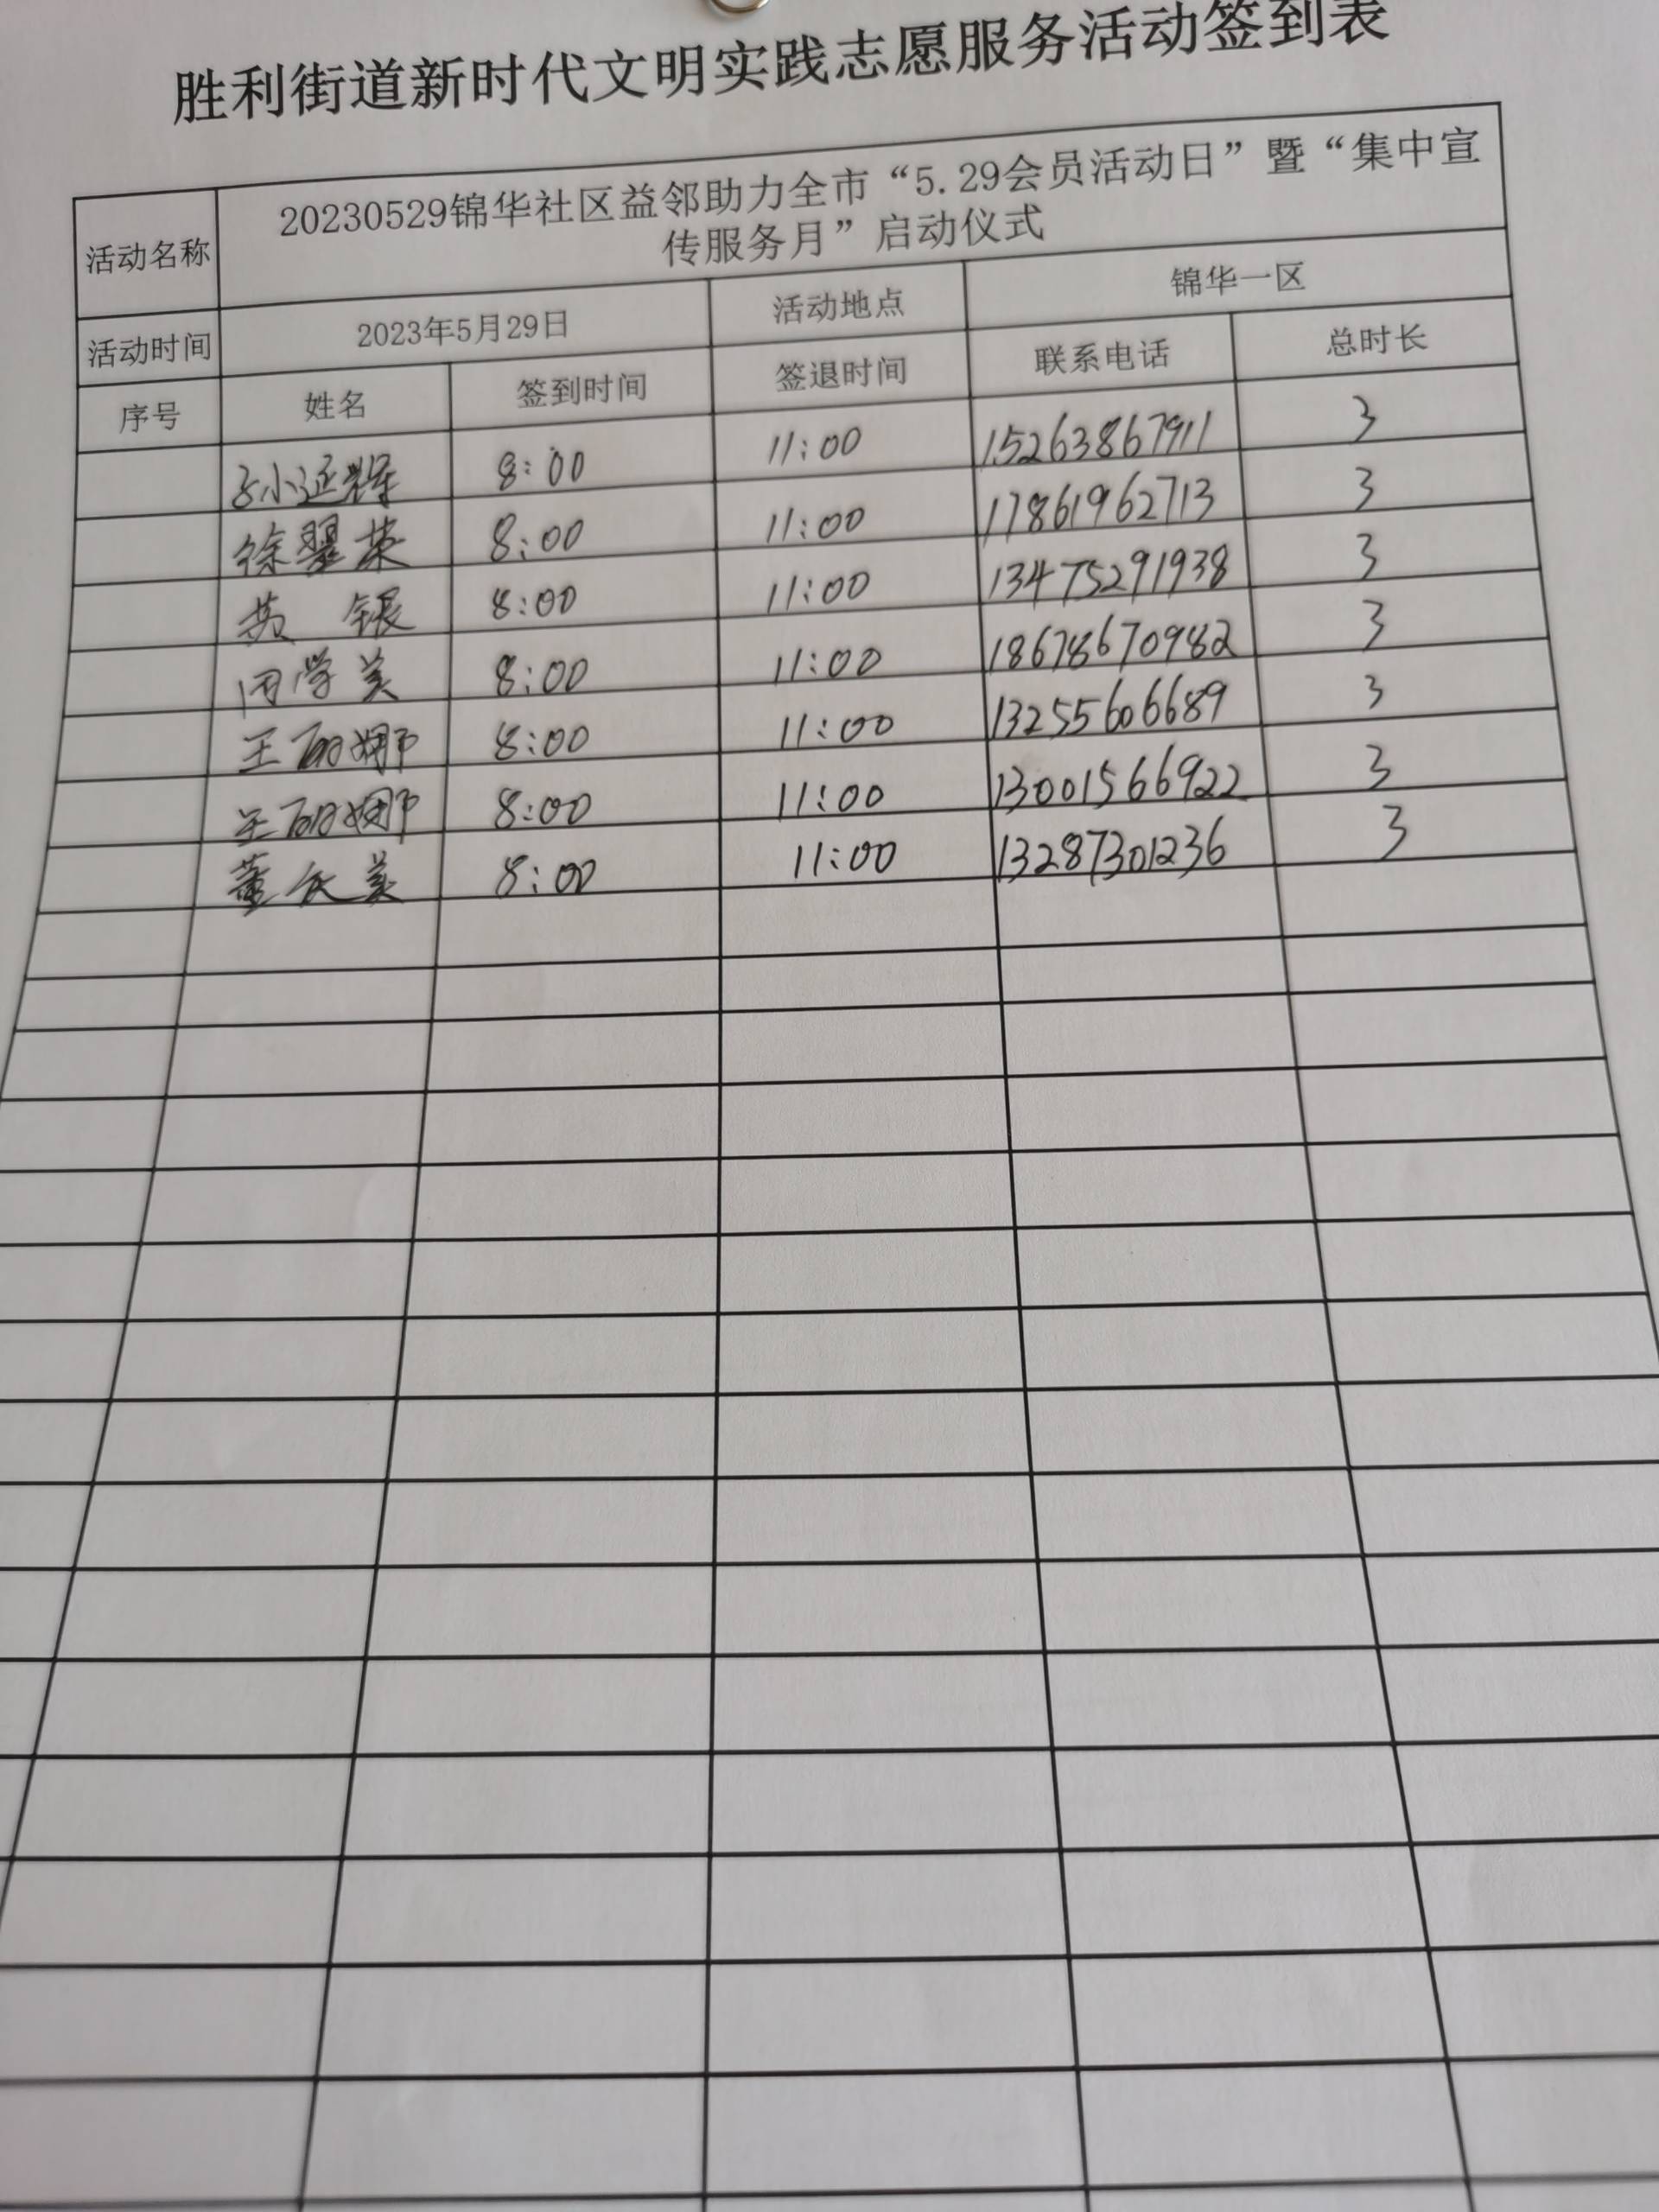 胜利街道新时代文明实践志愿服务活动签到表
活动名称 20230529锦华社区益邻助力全市“5.29会员活动日”暨“集中宣
传服务月”启动仪式
活动时间 2023年5月29日 活动地点 锦华一区
序号 姓名 签到时间 签退时间 联系电话 总时长
孙延辉 8:00 11:00 15263867911 3
徐翠荣 8:00 11:00 17861962713 3
黄 银 8:00 11:00 13475291938 3
闫学美 8:00 11:00 18678670982 3
王丽娜 8:00 11:00 13255606689 3
王丽娜 8:00 11:00 13001566922 3
董美 8:00 11:00 13287301236 3